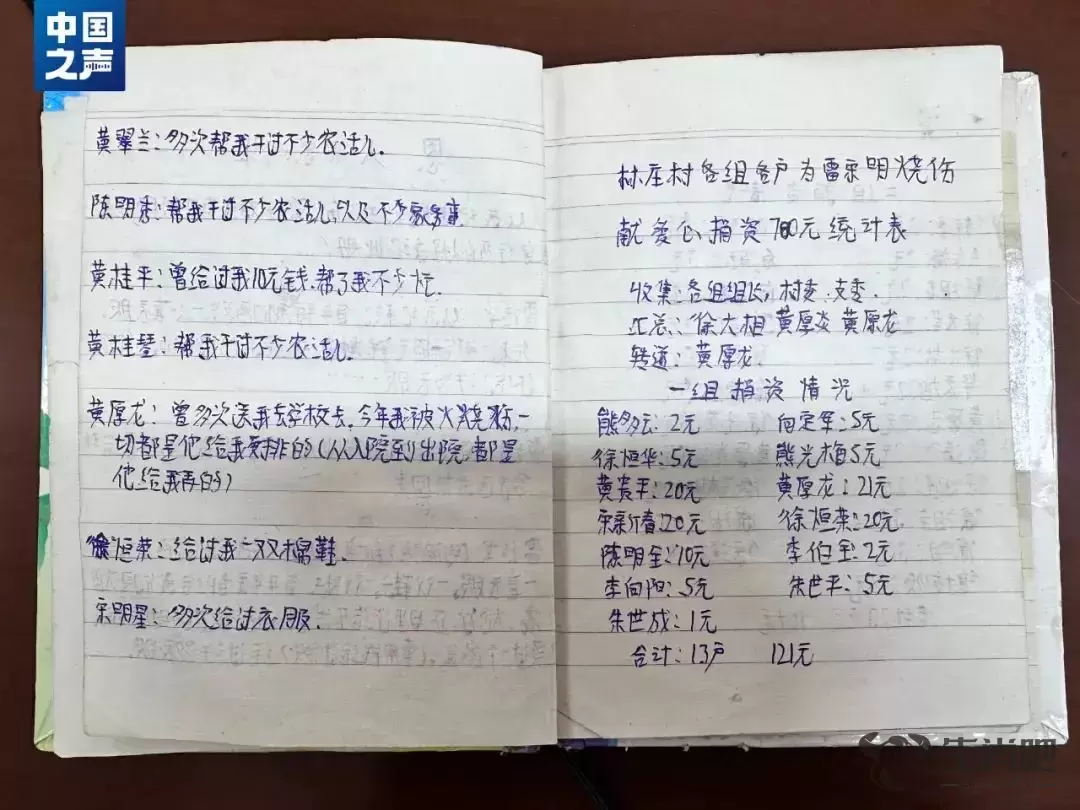 中国
之声
黄翠兰：多次帮我干过不少农活儿。
陈明秀：帮我干过不少农活儿，以及不少家务事
黄桂平：曾给过我10元钱.帮了我不少忙.
黄桂琴：帮我干过不少农活儿.
黄厚龙：曾多次送我去学校去，今年我被火烧伤，一
切都是他给我安排的（从入院到出院，都是
他给我弄的）
徐恒荣：给过我一双棉鞋.
宋明星：多次给过衣服.
林庄村各组各户为雷宗明烧伤
献爱心捐资700元统计表
收集：各组组长，村委.支委.
汇总：徐大相 黄厚炎 黄厚龙
转道：黄厚龙.
一组捐资情况
熊多云：2元 向定军：5元
徐恒华：5元 熊光梅5元
黄贵平：20元 黄厚龙：21元
宋新春：20元 徐恒荣：20元
陈明全：10元 李伯全：2元
李向阳：5元 朱世平：5元
朱世成：1元
合计：13户 121元